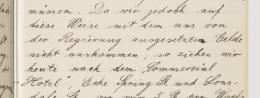 müssen. Da wir jedoch auf
diese Weise mit dem uns von
der Regierung ausgesetzten Gelde
nicht auskommen, so ziehen wir
heute nach dem "Commercial
Hotel", Ecke Spring St. und Lons-
dale St., wo wir